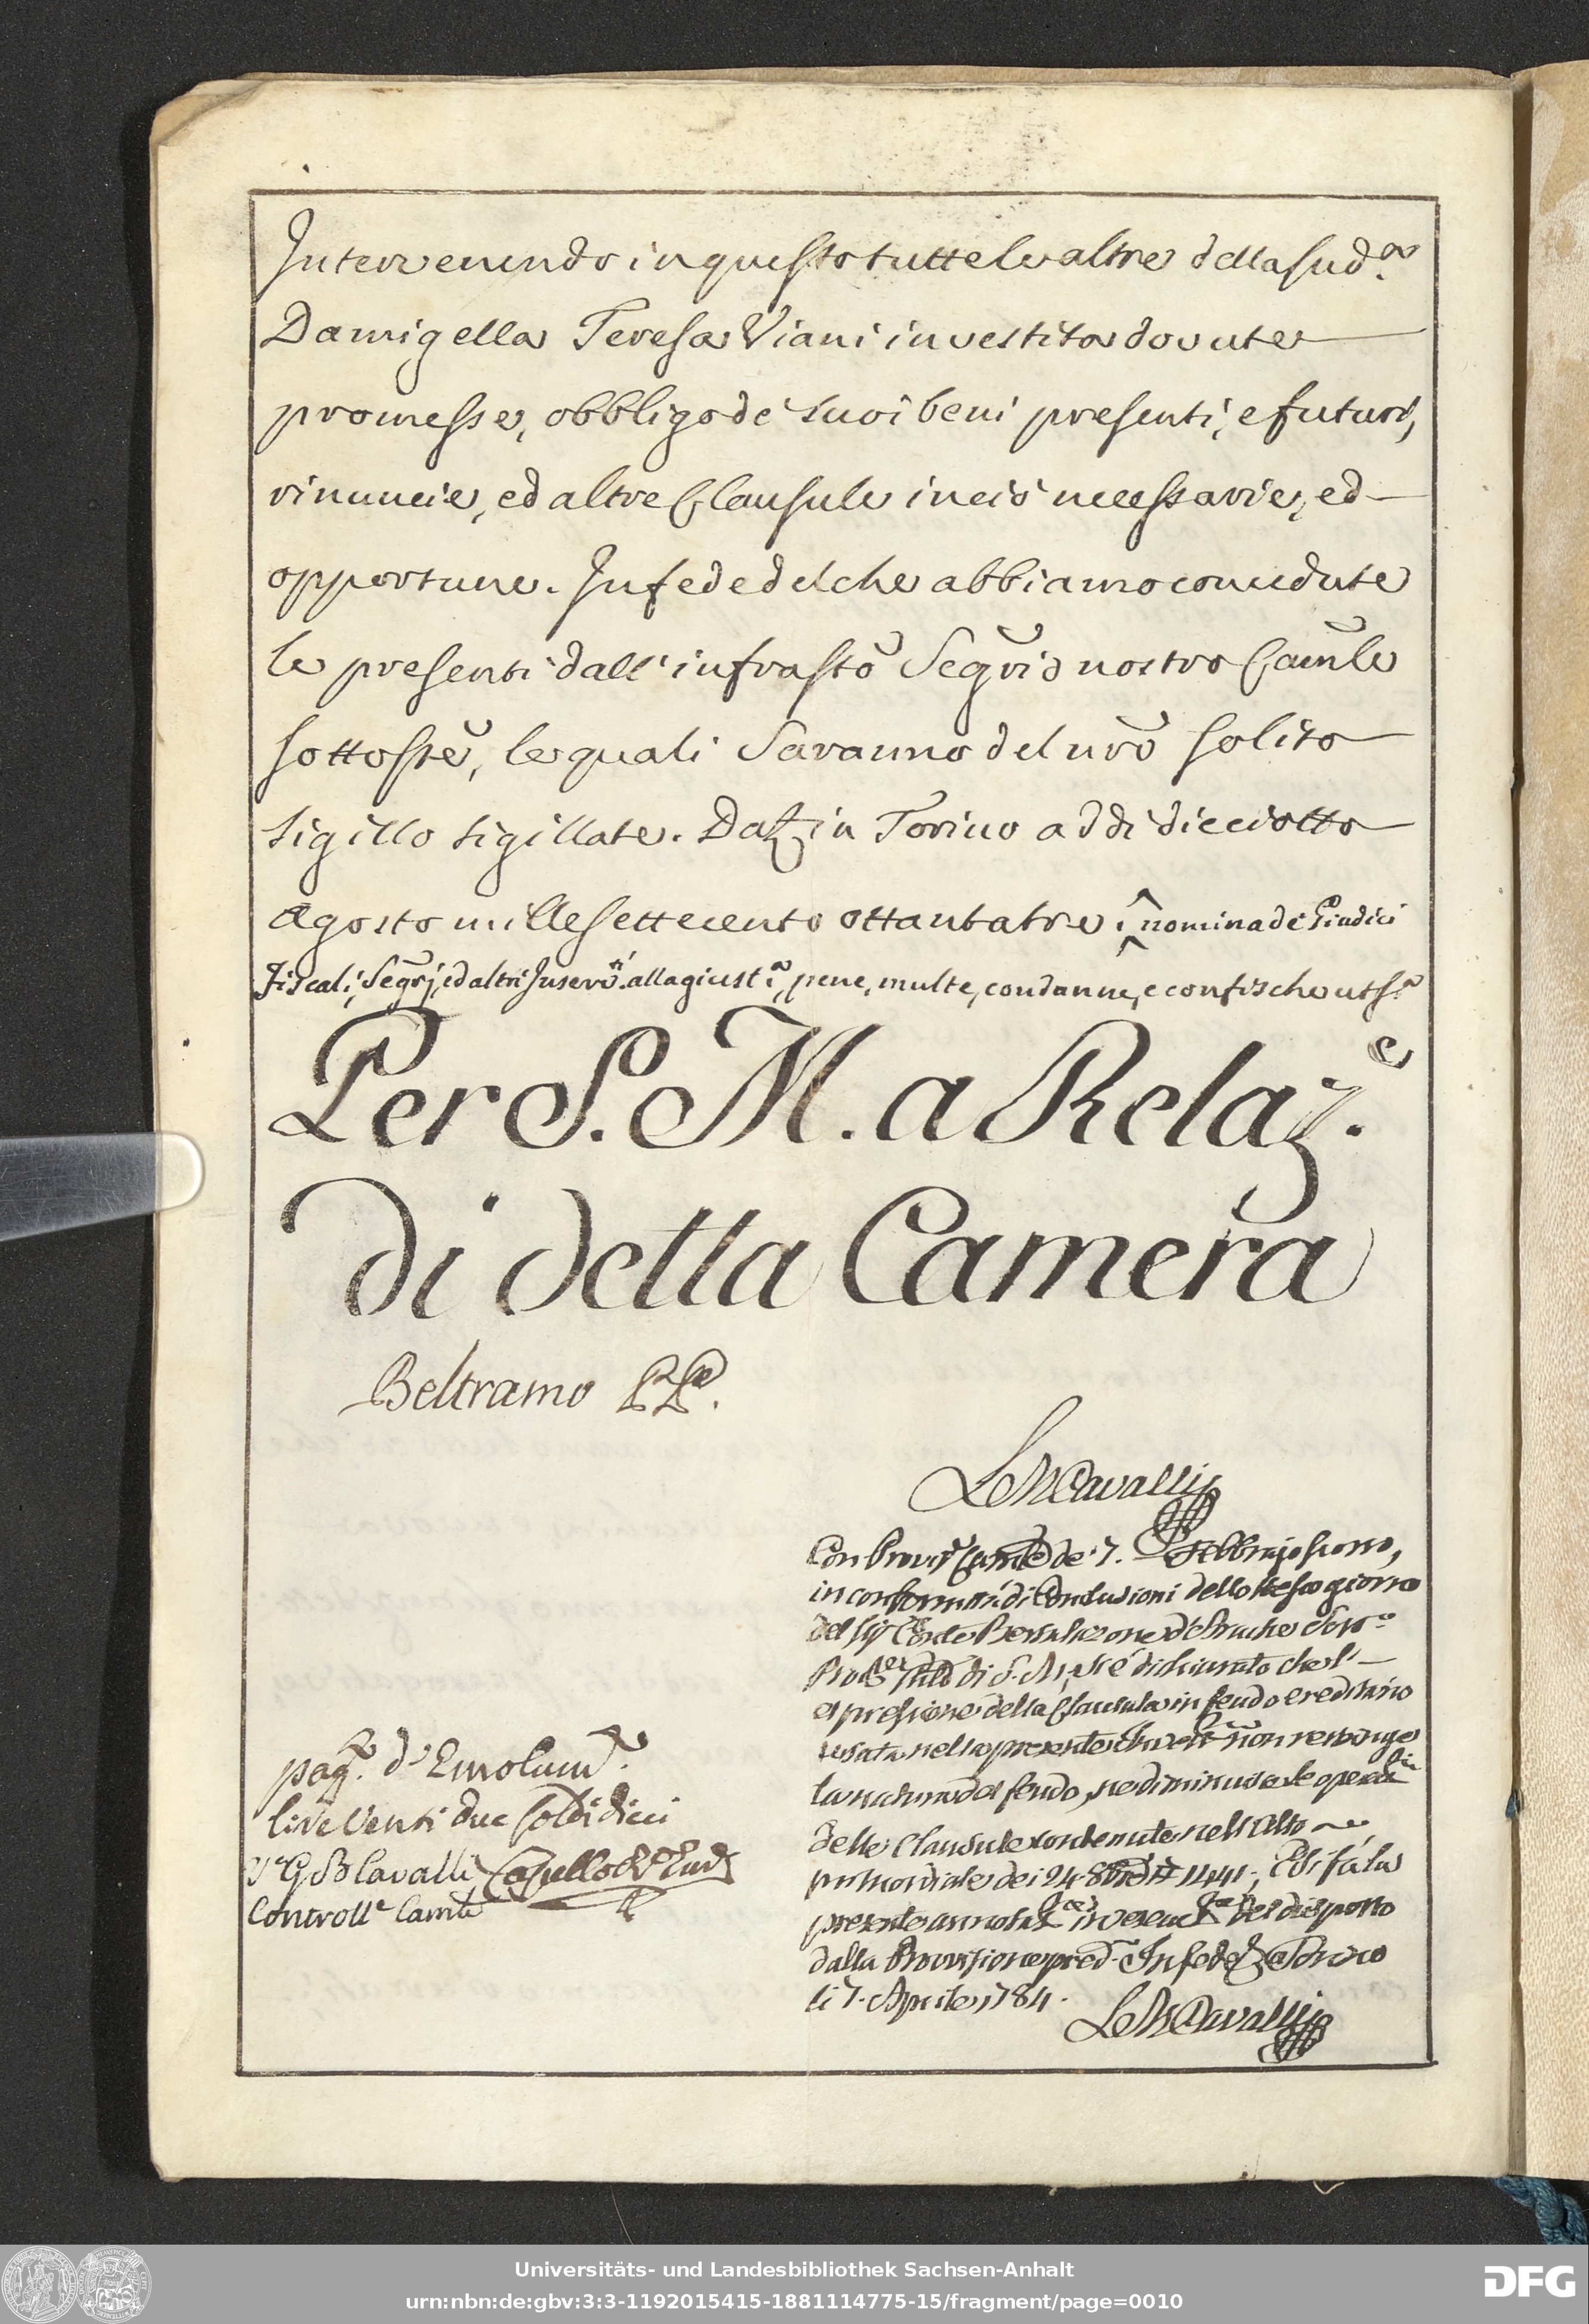 Intervenendo in questo tutte le altre della sud.ª
Damigella Teresa Viani investita dovute
promesse, obbligo de' suoi beni presenti, e futuri,
rinuncie, ed altre Clausule in ciò necessarie, ed
opportune. In fede del che abbiamo concedute
le presenti dall'infrasto Segrio nostro Camle
sottoste, le quali saranno del nro solito
sigillo sigillate. Dat in Torino addi dieciotto
Agosto mille settecento ottantatre nomina de Giudici
Fiscali, Segrj, ed altri Inserv.ti alla giust.ª, pene, multe, condanne, e confische ut sª
Per S. M. a Relaz.e
di detta Camera
Beltramo PP.
Cavalli
Con Provis Camle de' 7. Febbrajo scorso,
in conformità di Conclusioni dello stesso giorno
del Sig Conte
di S. M, si è dichiarato che l'
espressione della Clausula in feudo ereditario
usata nella presente non restringe
la natura del feudo, ne diminuisca le
delle Clausule contenute nell'Atto
primordiale dei 24. 8bre 1441; E si fa la
presente di disposto
dalla Provvisione pred. In fede Torino
li 7. Aprile 1784.
Cavalli
pag. d'Emolum.
lire venti due soldi dieci
GB Cavalli Capello
Controll.e Camle
Universitäts- und Landesbibliothek Sachsen-Anhalt
urn:nbn:de:gbv:3:3-1192015415-1881114775-15/fragment/page=0010
DFG